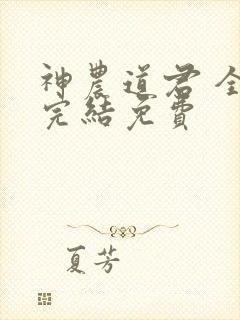 神農道君全
完結免費
夏芳